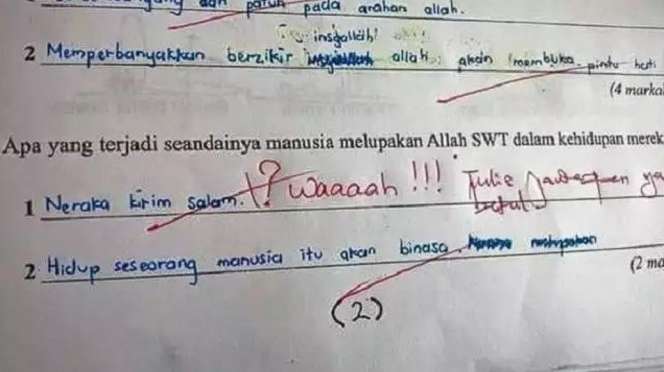 dan patuh pada arahan allah.
insyallah!
2 Memperbanyakkan berzikir allah akan membuka pintu hati
(4 marka
Apa yang terjadi seandainya manusia melupakan Allah SWT dalam kehidupan merek
1 Neraka kirim salam. ? Waaaah !!! Tulis Jawapan ya
betul
2 Hidup seseorang manusia itu akan binasa.
(2 ma
(2)